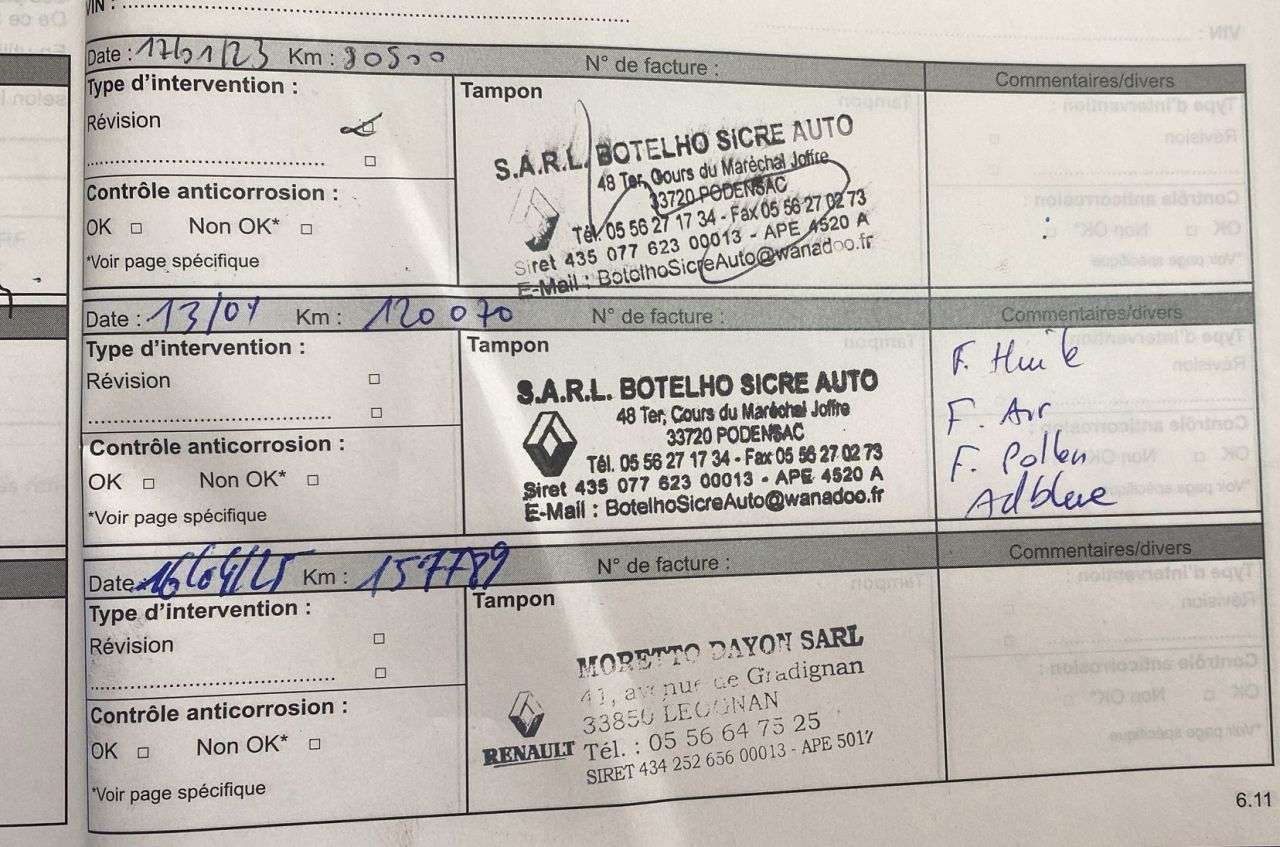 VIN :
Date : 17/01/23 Km : 90500 N° de facture :
Commentaires/divers
Type d'intervention :
Révision
Contrôle anticorrosion :
OK Non OK*
*Voir page spécifique
Tampon
S.A.R.L. BOTELHO SICRE AUTO
48 Ter, Cours du Maréchal Joffre
33720 PODENSAC
Tél. 05 56 27 17 34 - Fax 05 56 27 02 73
Siret 435 077 623 00013 - APE 4520 A
E-Mail : BotelhoSicreAuto@wanadoo.fr
Date : 13/04 Km : 120 070 N° de facture :
Commentaires/divers
Type d'intervention :
Révision
Contrôle anticorrosion :
OK Non OK*
*Voir page spécifique
Tampon
S.A.R.L. BOTELHO SICRE AUTO
48 Ter, Cours du Maréchal Joffre
33720 PODENSAC
Tél. 05 56 27 17 34 - Fax 05 56 27 02 73
Siret 435 077 623 00013 - APE 4520 A
E-Mail : BotelhoSicreAuto@wanadoo.fr
F. Huile
F. Air
F. Pollen
Adblue
Date 16/04/25 Km : 157789 N° de facture :
Commentaires/divers
Type d'intervention :
Révision
Contrôle anticorrosion :
OK Non OK*
*Voir page spécifique
Tampon
MORETTO DAYON SARL
41, avenue de Gradignan
33850 LEOGNAN
RENAULT Tél. : 05 56 64 75 25
SIRET 434 252 656 00013 - APE 501Z
6.11